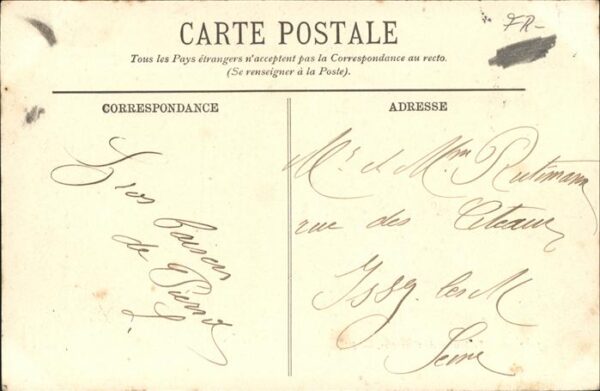 FR-
CARTE POSTALE
Tous les Pays étrangers n'acceptent pas la Correspondance au recto.
(Se renseigner à la Poste).
CORRESPONDANCE
Gros baisers
de Pierre
ADRESSE
Mr et Mme
rue des
Issy les M.
Seine